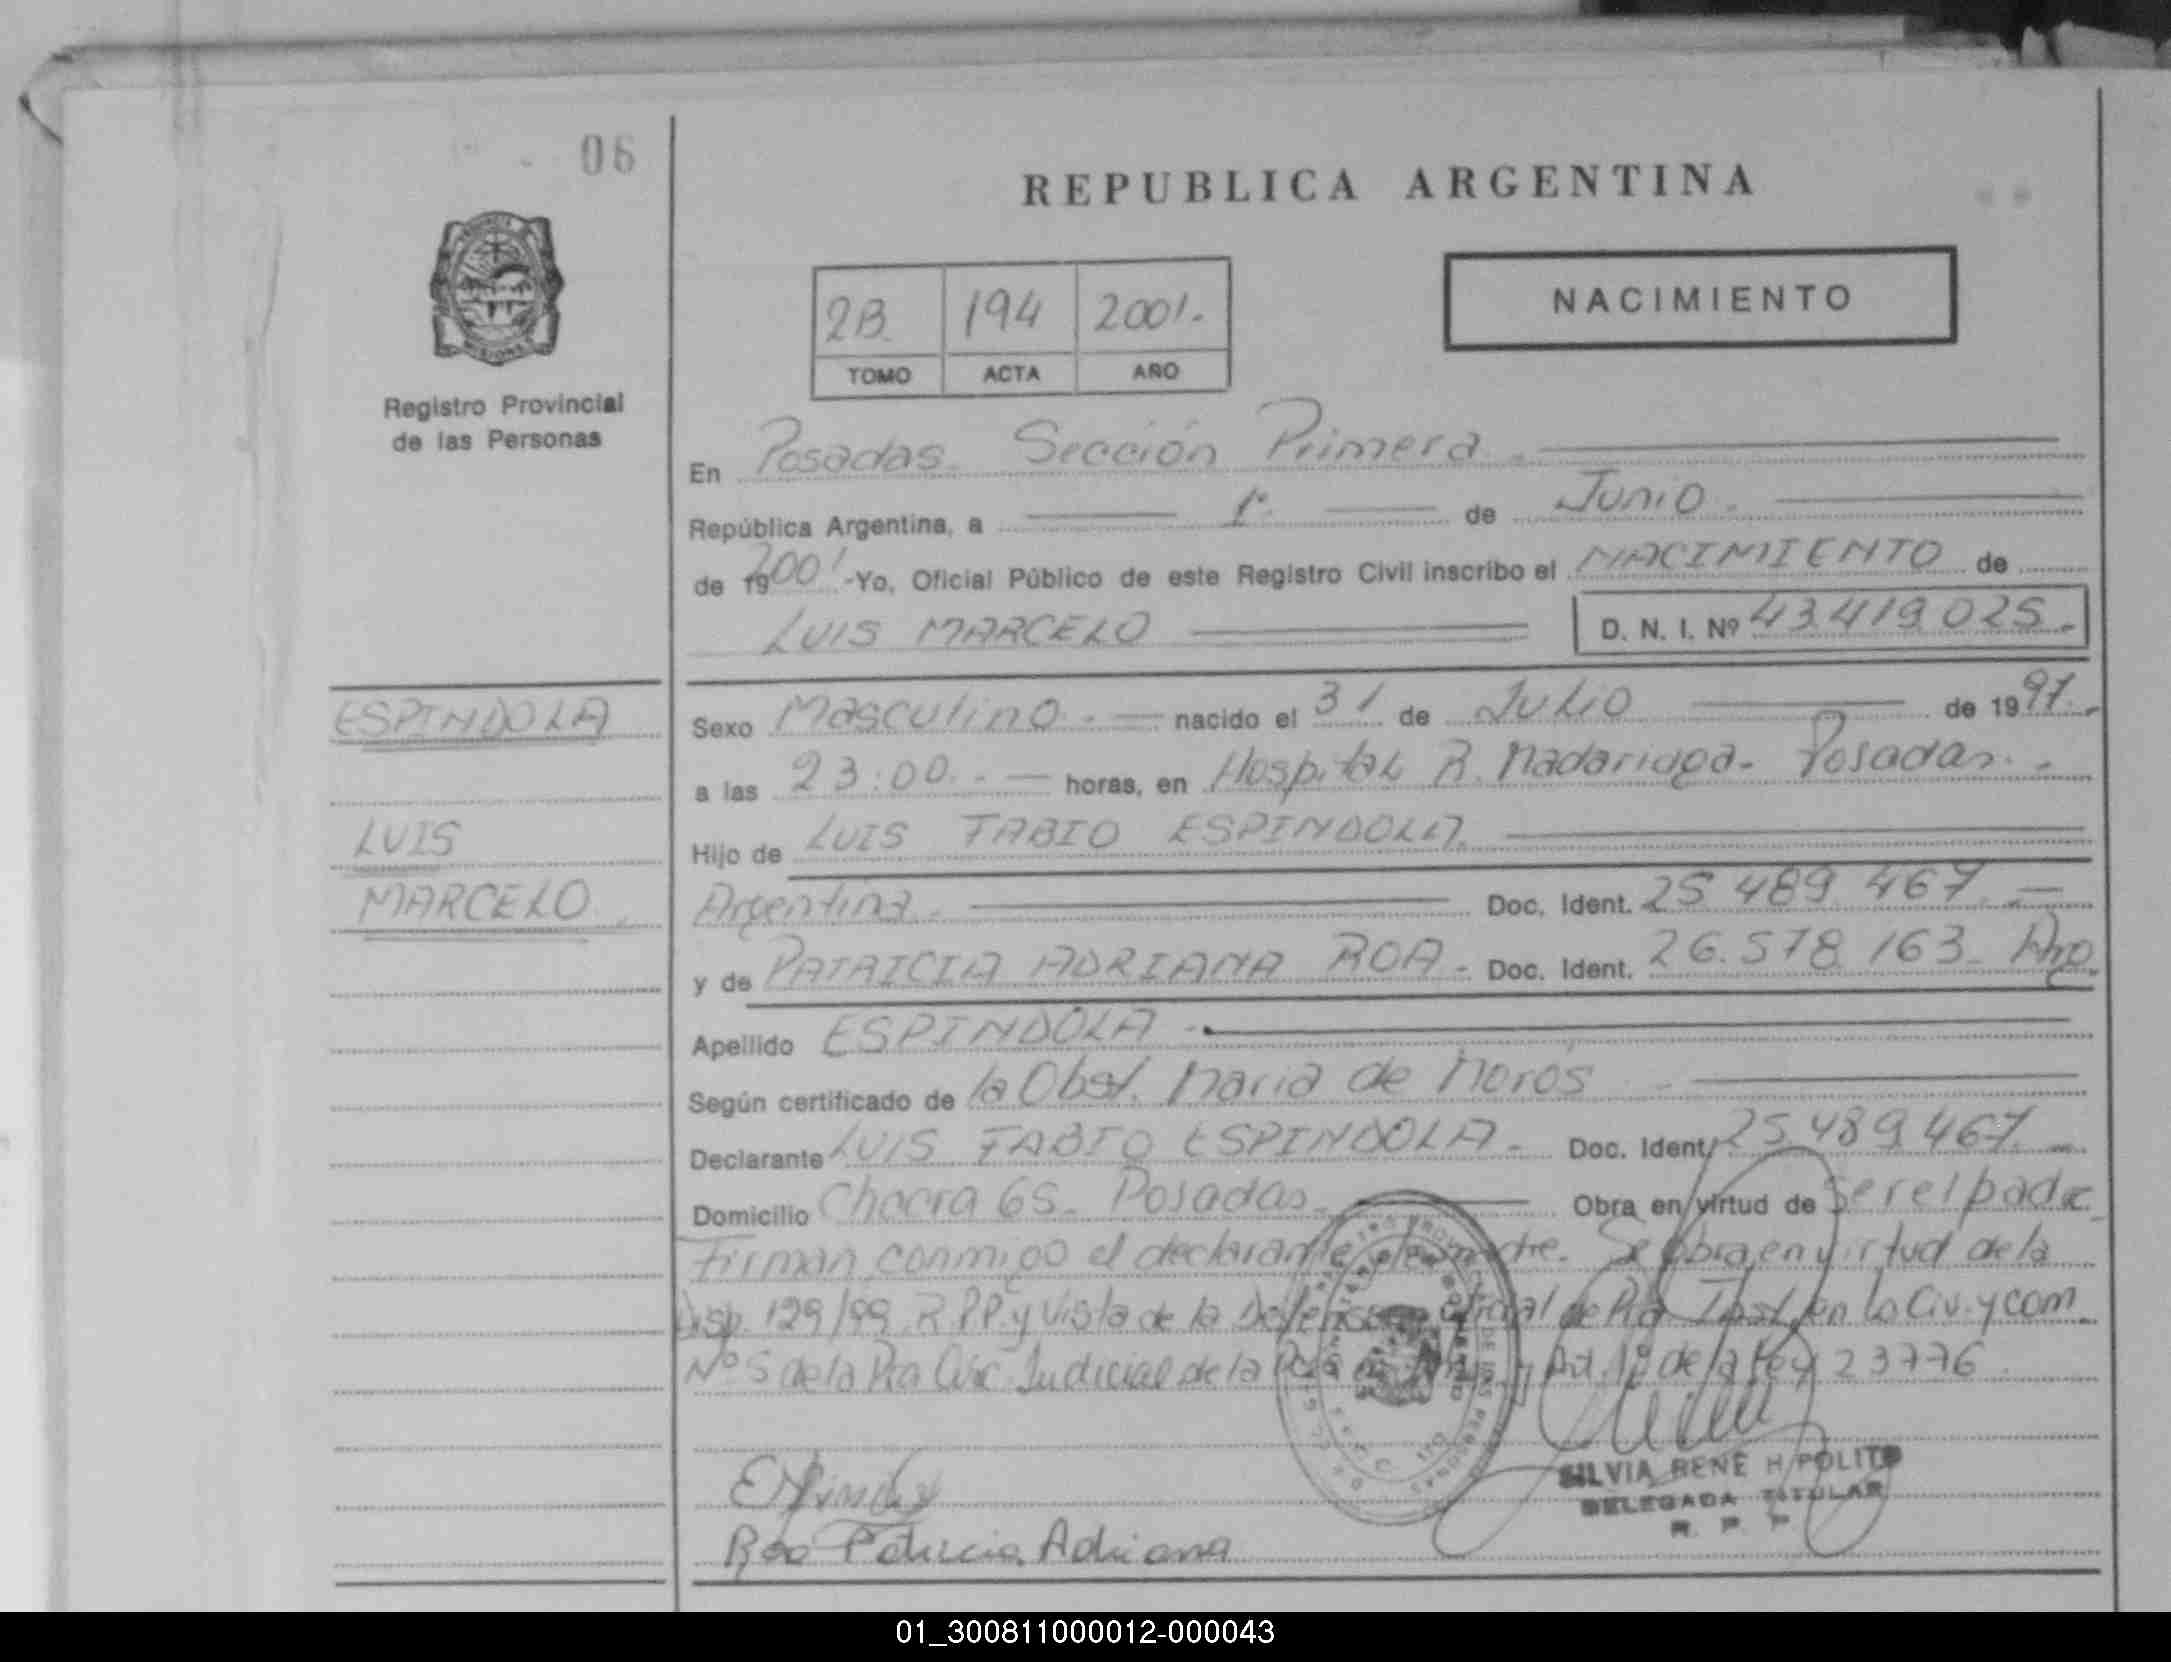 06
REPUBLICA ARGENTINA
NACIMIENTO
2B 194 2001.
TOMO ACTA AÑO
Registro Provincial
de las Personas
En Posadas. Sección Primera.
República Argentina, a 1º de Junio.
de 19 2001 -Yo, Oficial Público de este Registro Civil inscribo el NACIMIENTO de
LUIS MARCELO D. N. I. Nº 43.419.025.-
ESPINDOLA
Sexo Masculino.- nacido el 31 de Julio de 1997.-
a las 23:00.- horas, en Hospital R. Madariaga. Posadas.-
LUIS
Hijo de LUIS FABIO ESPINDOLA.
MARCELO.
Argentina. Doc. Ident. 25.489.467.-
y de PATRICIA ADRIANA ROA- Doc. Ident. 26.578.163- Arg.
Apellido ESPINDOLA.-
Según certificado de la Obst. Maria de Morós
Declarante LUIS FABIO ESPINDOLA.- Doc. Ident. 25.489.467.-
Domicilio Chacra 65- Posadas.- Obra en virtud de Ser el padre.
Firman conmigo el declarante y la madre. Se obra en virtud de la
Disp. 129/99 R.P.P. y Vista de la Defensora Oficial de Pra Inst. en lo Civ. y com
Nº 5 de la Pra Circ. Judicial de la Art. 1º de la Ley 23776.
Roa Patricia Adriana
SILVIA RENÉ HIPOLITO
DELEGADA TITULAR
R. P. P.
01_300811000012-000043